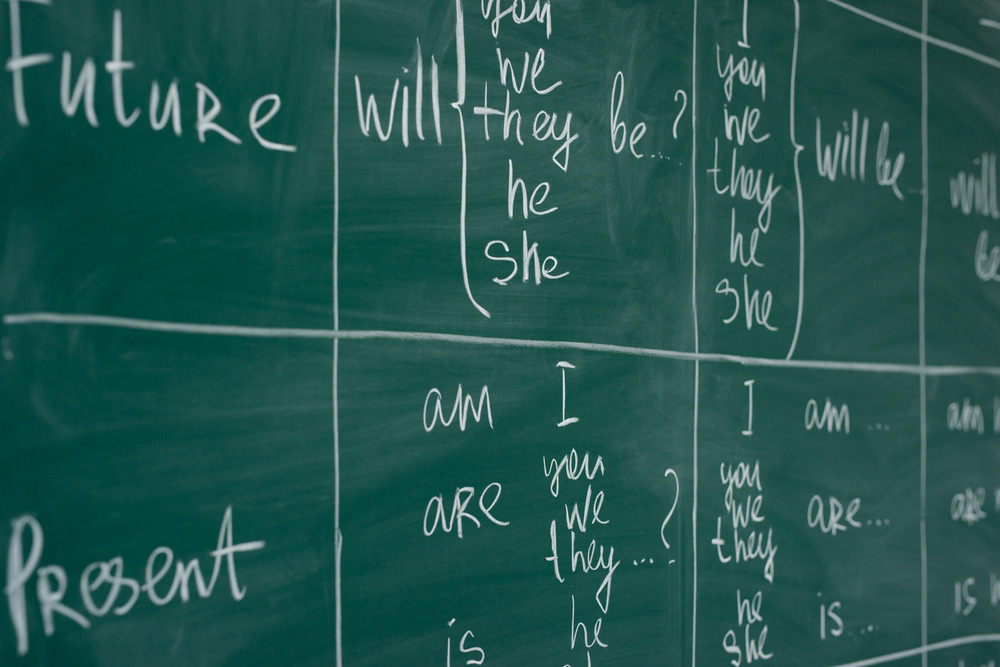 Future
will
you
we
they
he
she
be...?
I
you
we
they
he
she
will be...
will
be
Present
am I
are
you
we
they...?
is
he
I am ...
you
we
they
are...
he
she
is...
am
are
is